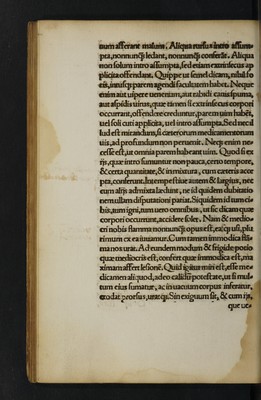 num afferant malum. Aliqua rursus intro assum-
pta, nonnunq̃ lædant, nonnunq̃ conferãt. Aliqua
non solum intro assumpta, sed etiam extrinsecus ap
plicita offendant. Quippe ut semel dicam, nihil fo
ris, intusq̃ parem agendi facultatem habet. Neque
enim aut vipere venenum, aut rabidi canis spuma,
aut aspidis virus, quæ tamen si extrinsecus corpori
occurrant, offendere creduntur, parem vim habẽt,
vel soli cuti applicita, vel intro assumpta. Sed nec il
lud est mirandum, si cæterorum medicamentorum
vis, ad profundum non perueniat. Neq̃ enim ne-
cesse est, ut omnia parem habeant vim. Quod si ex
ijs, quæ intro sumuntur non pauca, certo tempore,
& certa quantitate, & in mixtura, cum cæteris acce
pta, conferunt. Intempestiue autem & largius, nec
cum alijs admixta lædunt, ne id quidem dubitatio-
nem ullam disputationi pariat. Siquidem id tum ci-
bis, tum igni, tum uero omnibus, ut sic dicam quæ
corpori occurrunt, accidere solet. Nam & medio-
cri nobis flamma nonnunq̃ opus est, ex q̃ usi, plu
rimum ex ea iuuamur. Cum tamen immodica flã-
ma nos urat. Ad eundem modum & frigidæ potio
quæ mediocris est, confert quæ immodica est, ma
ximam affert læsionẽ. Quid igitur miri est, esse me
dicamen aliquod, adeo calidũ potestate, ut si mul-
tum eius sumatur, ac in uacuum corpus inferatur,
erodat prorsus, uratq̃. Sin exiguum sit, & cum ijs,
que ue-